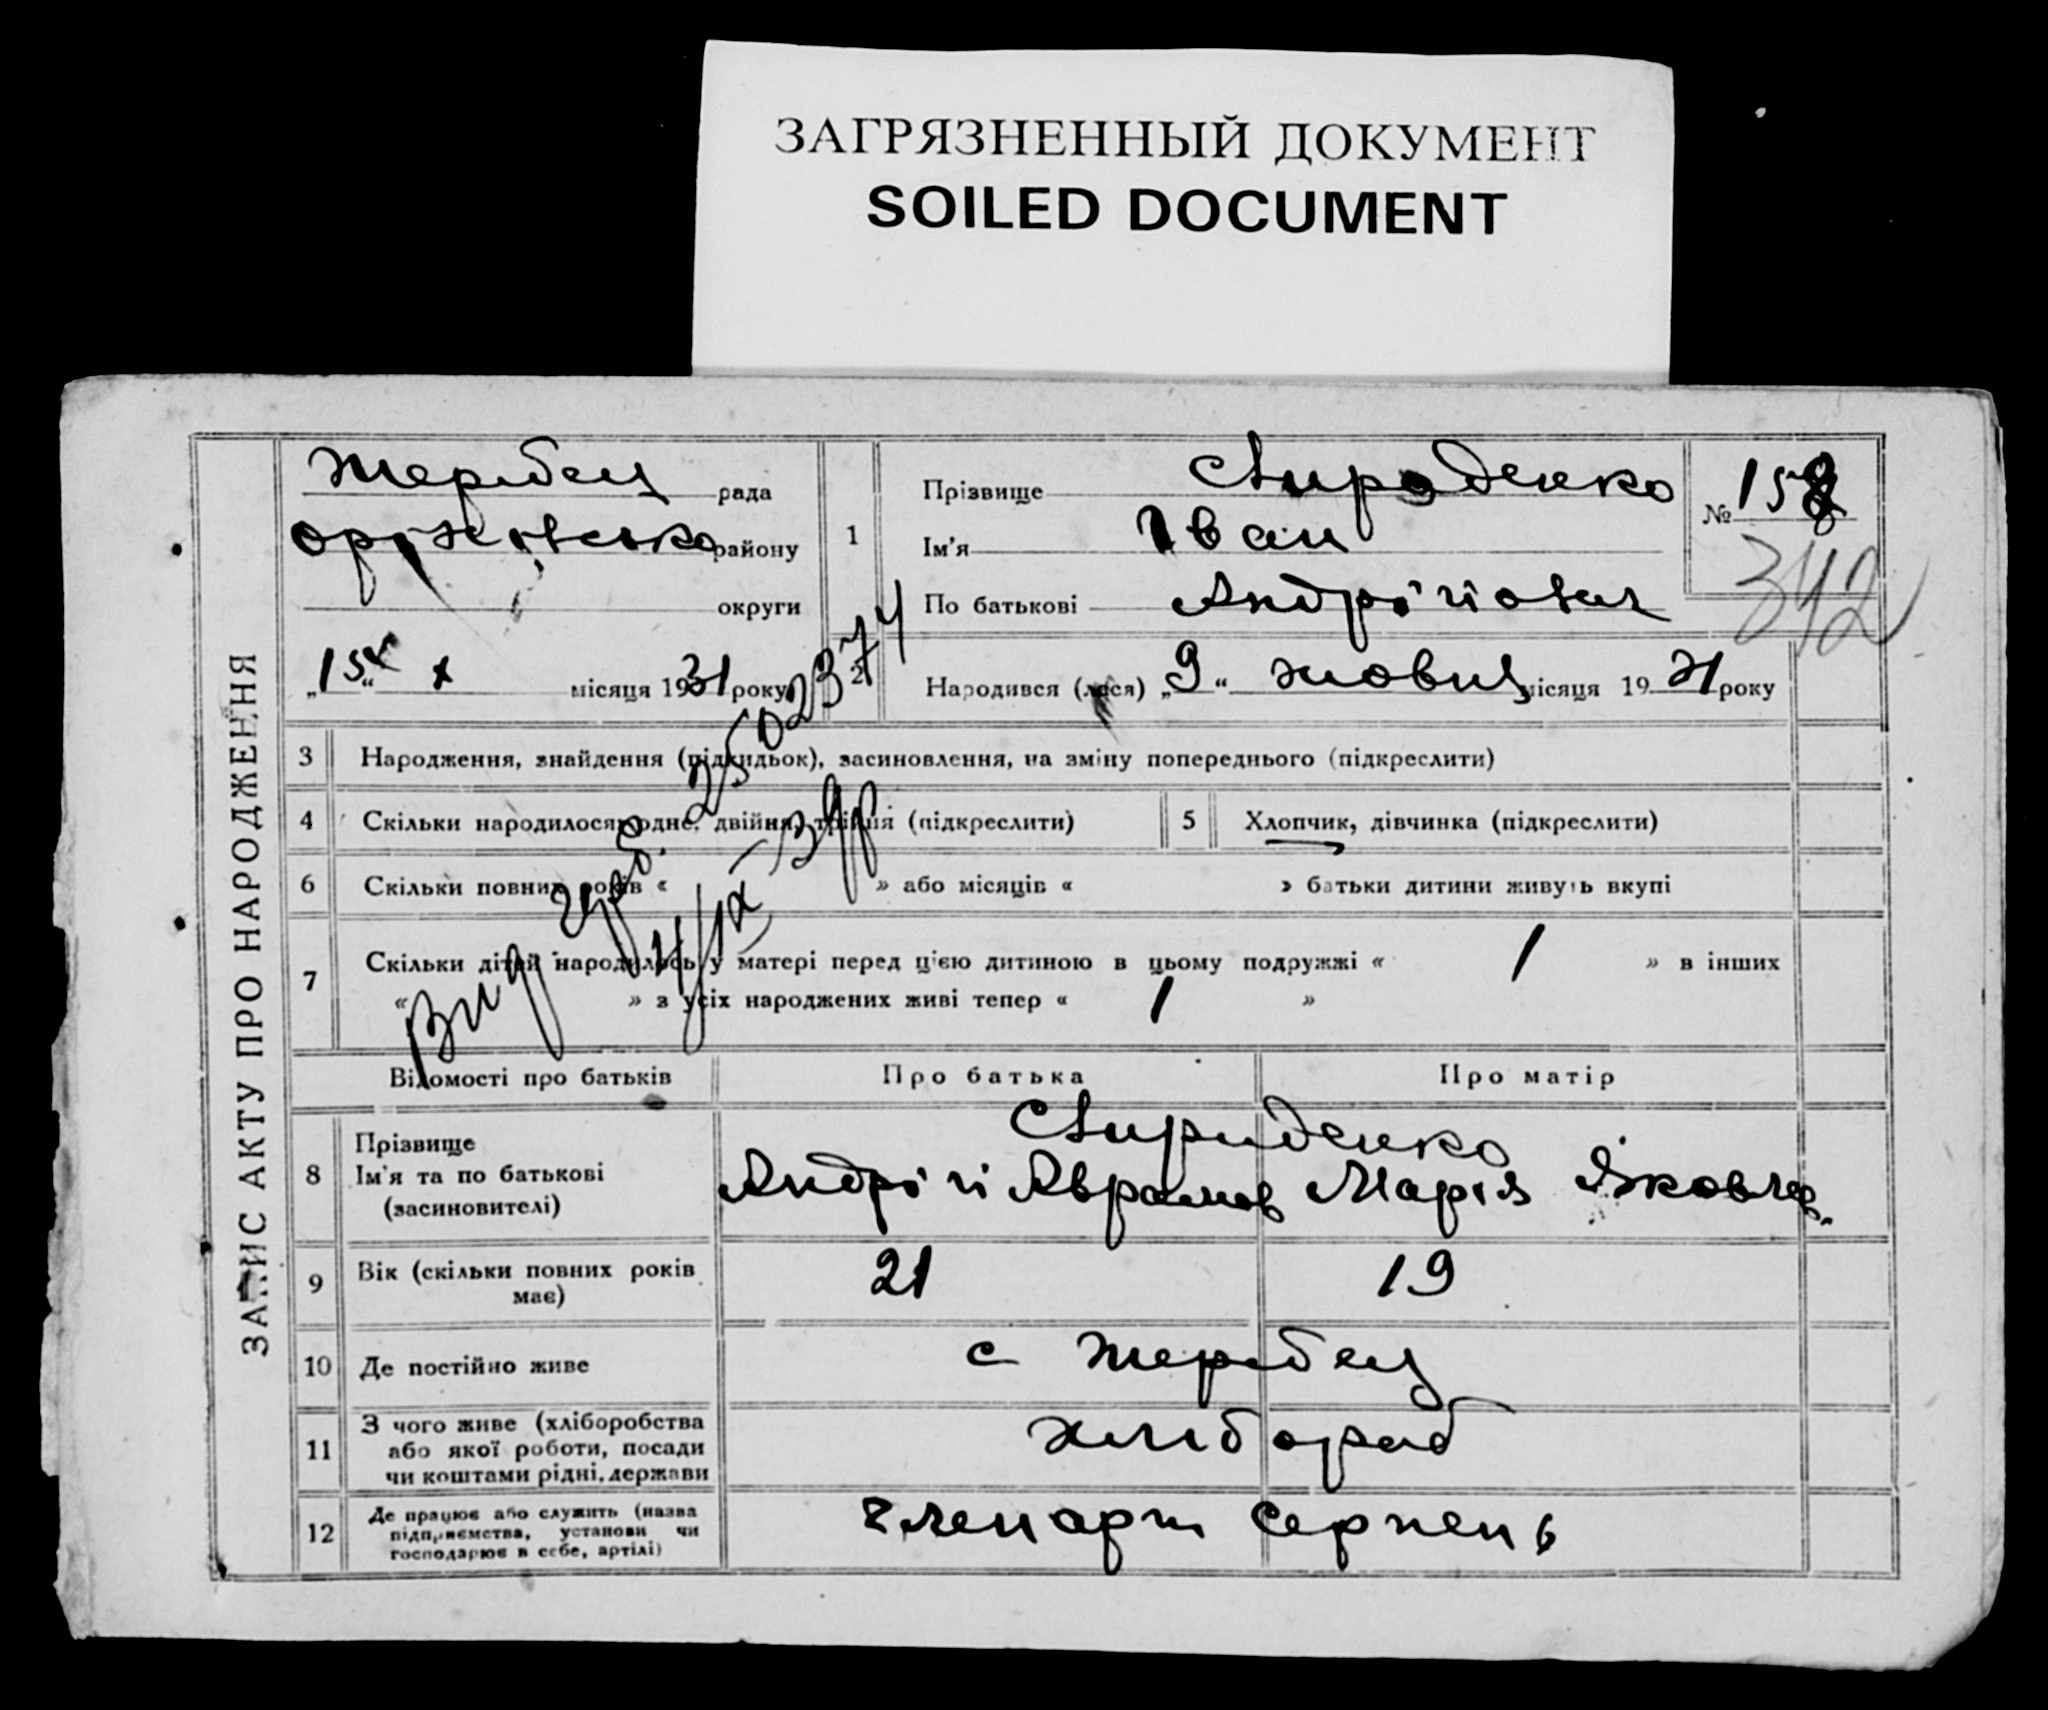 ЗАГРЯЗНЕННЫЙ ДОКУМЕНТ
SOILED DOCUMENT
ЗАПИС АКТУ ПРО НАРОДЖЕННЯ
Жеребец рада
Оріхівсько району
округи
„15“ X місяця 1931 року
1
Прізвище Свириденко
Ім'я Іван
По батькові Андрійович
№ 158
342
2
Народився (лася) „9“ жовтня місяця 1931 року
3 Народження, знайдення (підкидьок), засиновлення, на зміну попереднього (підкреслити)
4 Скільки народилося: одне, двійня, трійня (підкреслити)
5 Хлопчик, дівчинка (підкреслити)
6 Скільки повних років « » або місяців « » батьки дитини живуть вкупі
7 Скільки дітей народилось у матері перед цією дитиною в цьому подружжі « 1 » в інших
« » з усіх народжених живі тепер « 1 »
2502374
Відомості про батьків Про батька Про матір
8 Прізвище Свириденко
Ім'я та по батькові Андрій Аврамов Марія Яковлев.
(засиновителі)
9 Вік (скільки повних років має) 21 19
10 Де постійно живе с Жеребец
11 З чого живе (хліборобства
або якої роботи, посади
чи коштами рідні, держави
хлібороб
12 Де працює або служить (назва
підприємства, установи чи
господарює в себе, артілі)
член арт Серпень